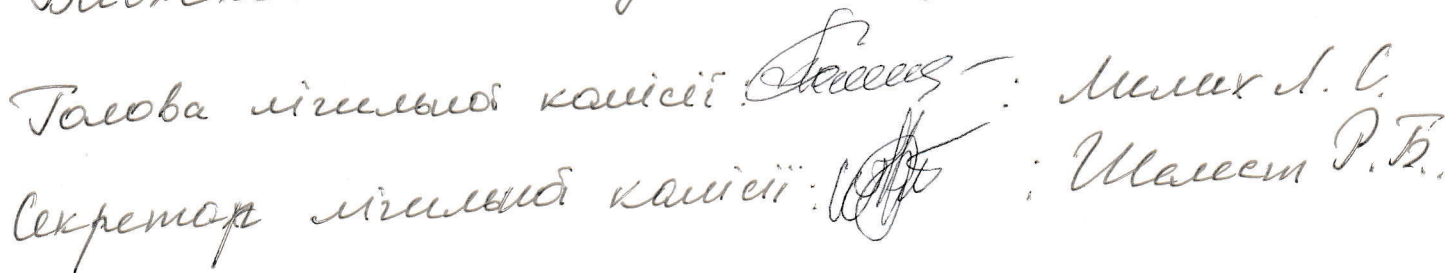 Голова лічильної комісії: : Милих Л. С.
Секретар лічильної комісії: : Шелест Р. Б.